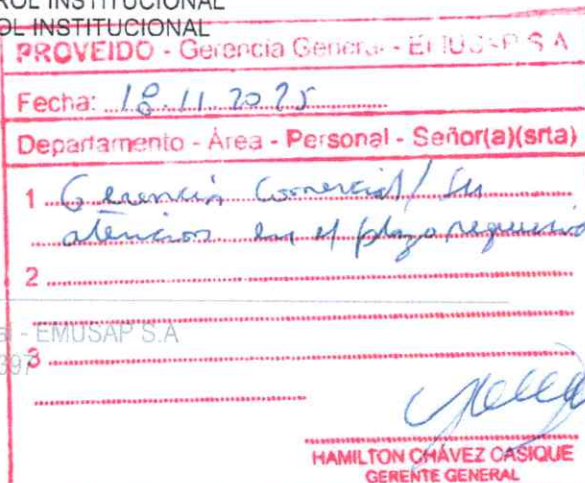 ROL INSTITUCIONAL
OL INSTITUCIONAL
PROVEIDO - Gerencia General - EMUSAP S.A
Fecha: 18.11.2025
Departamento - Área - Personal - Señor(a)(srta)
1 Gerencia Comercial / Su
atencion en el plazo requerido
2
al - EMUSAP S.A
397
3
HAMILTON CHÁVEZ CASIQUE
GERENTE GENERAL